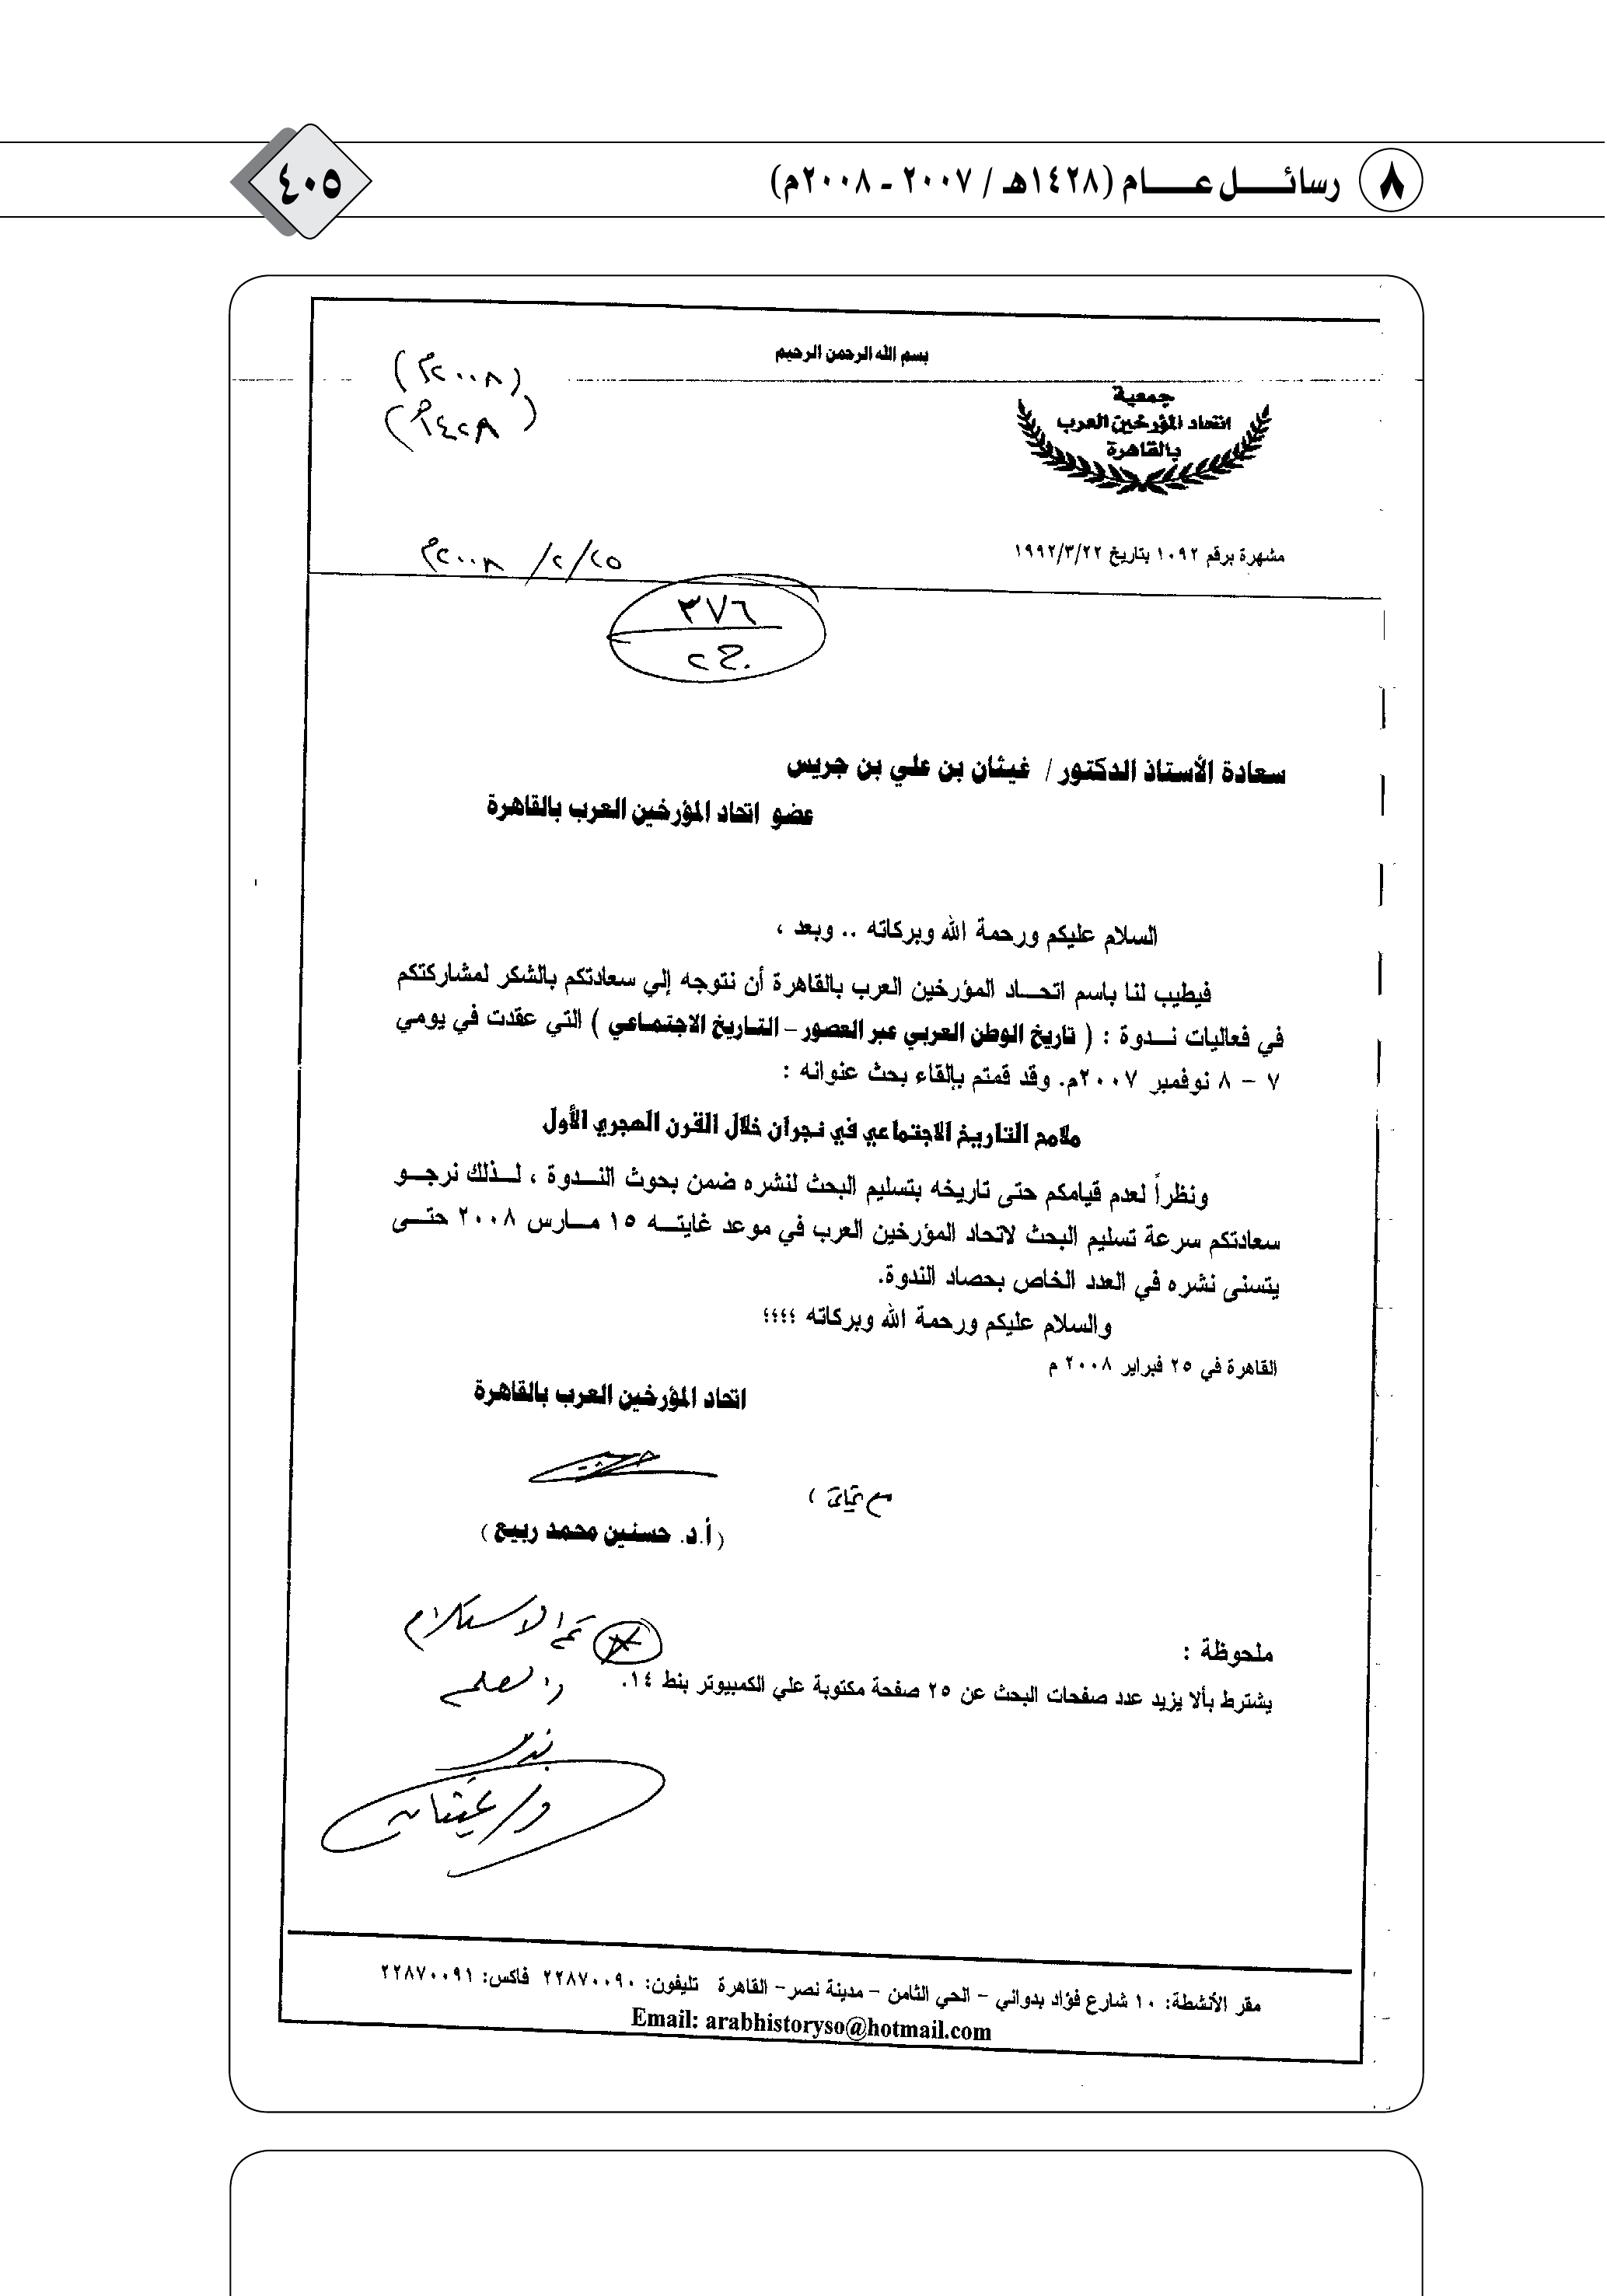 ٨ رسائـــــل عـــــام (١٤٢٨هـ / ٢٠٠٧ ـ ٢٠٠٨م)
٤٠٥
بسم الله الرحمن الرحيم
(٢٠٠٨م)
(١٤٢٨)
جمعية
اتحاد المؤرخين العرب
بالقاهرة
مشهرة برقم ١٠٩٢ بتاريخ ١٩٩٢/٣/٢٢
٢٥/٢/٢٠٠٨م
٣٧٦
ج ٢
سعادة الأستاذ الدكتور / غيثان بن علي بن جريس
عضو اتحاد المؤرخين العرب بالقاهرة
السلام عليكم ورحمة الله وبركاته .. وبعد ،
فيطيب لنا باسم اتحـــاد المؤرخين العرب بالقاهرة أن نتوجه إلي سعادتكم بالشكر لمشاركتكم
في فعاليات نـــدوة : ( تاريخ الوطن العربي عبر العصور – التـاريخ الاجتمـاعي ) التي عقدت في يومي
٧ – ٨ نوفمبر ٢٠٠٧م. وقد قمتم بإلقاء بحث عنوانه :
ملامح التاريخ الاجتماعي في نجران خلال القرن الهجري الأول
ونظراً لعدم قيامكم حتى تاريخه بتسليم البحث لنشره ضمن بحوث النـــدوة ، لـــذلك نرجـــو
سعادتكم سرعة تسليم البحث لاتحاد المؤرخين العرب في موعد غايتـــه ١٥ مـــارس ٢٠٠٨ حتـــى
يتسنى نشره في العدد الخاص بحصاد الندوة.
والسلام عليكم ورحمة الله وبركاته ؛؛؛؛
القاهرة في ٢٥ فبراير ٢٠٠٨ م
اتحاد المؤرخين العرب بالقاهرة
مع تحياتي ،
( أ.د. حسنين محمد ربيع )
تم الاستلام
والعلم
ملحوظة :
يشترط بألا يزيد عدد صفحات البحث عن ٢٥ صفحة مكتوبة علي الكمبيوتر بنط ١٤.
د/ غيثان
مقر الأنشطة: ١٠ شارع فؤاد بدواني – الحي الثامن – مدينة نصر– القاهرة تليفون: ٢٢٨٧٠٠٩٠ فاكس: ٢٢٨٧٠٠٩١
Email: arabhistoryso@hotmail.com